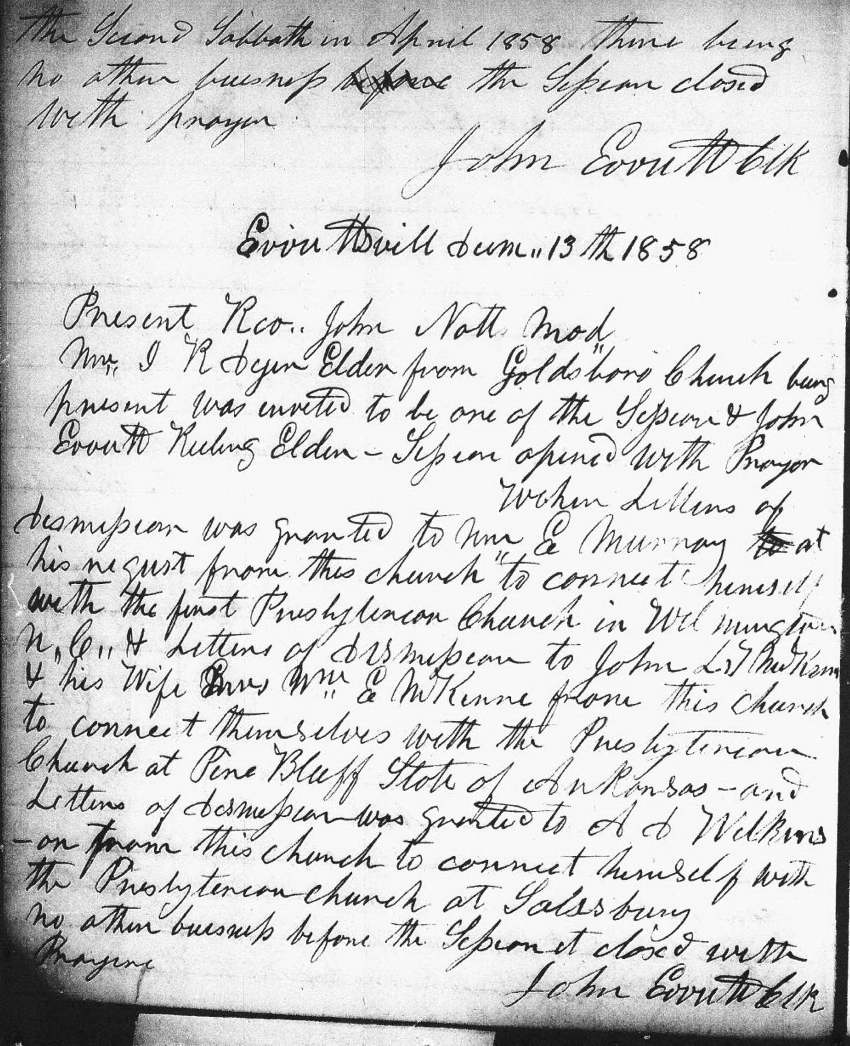 the Second Sabbath in April 1858 there being
no other buisness before the Session closed
with prayer
John Everett Clk
Everettsvill Decem,, 13th 1858
Present Rev.. John Nott Mod,,
Wm,, I K Dyer Elder from Goldsboro Church being
present was invited to be one of the Session & John
Everett Ruling Elder – Session opened with Prayer
When Letters of
dismission was granted to Wm,, E Murray to at
his requst from this church to connect himself
with the first Presbyterian Church in Wilmington
N,, C,, & Letters of dismission to John
& his Wife Wm E McKenne from this church
to connect themselves with the Presbyterian
Church at Pine Bluff State of Arkansas – and
Letters of dismission was granted to A D Wilkins
-on from this church to connect himself with
the Presbyterian church at Salsbury
no other buisness before the Session it closed with
Prayere
John Everett Clk